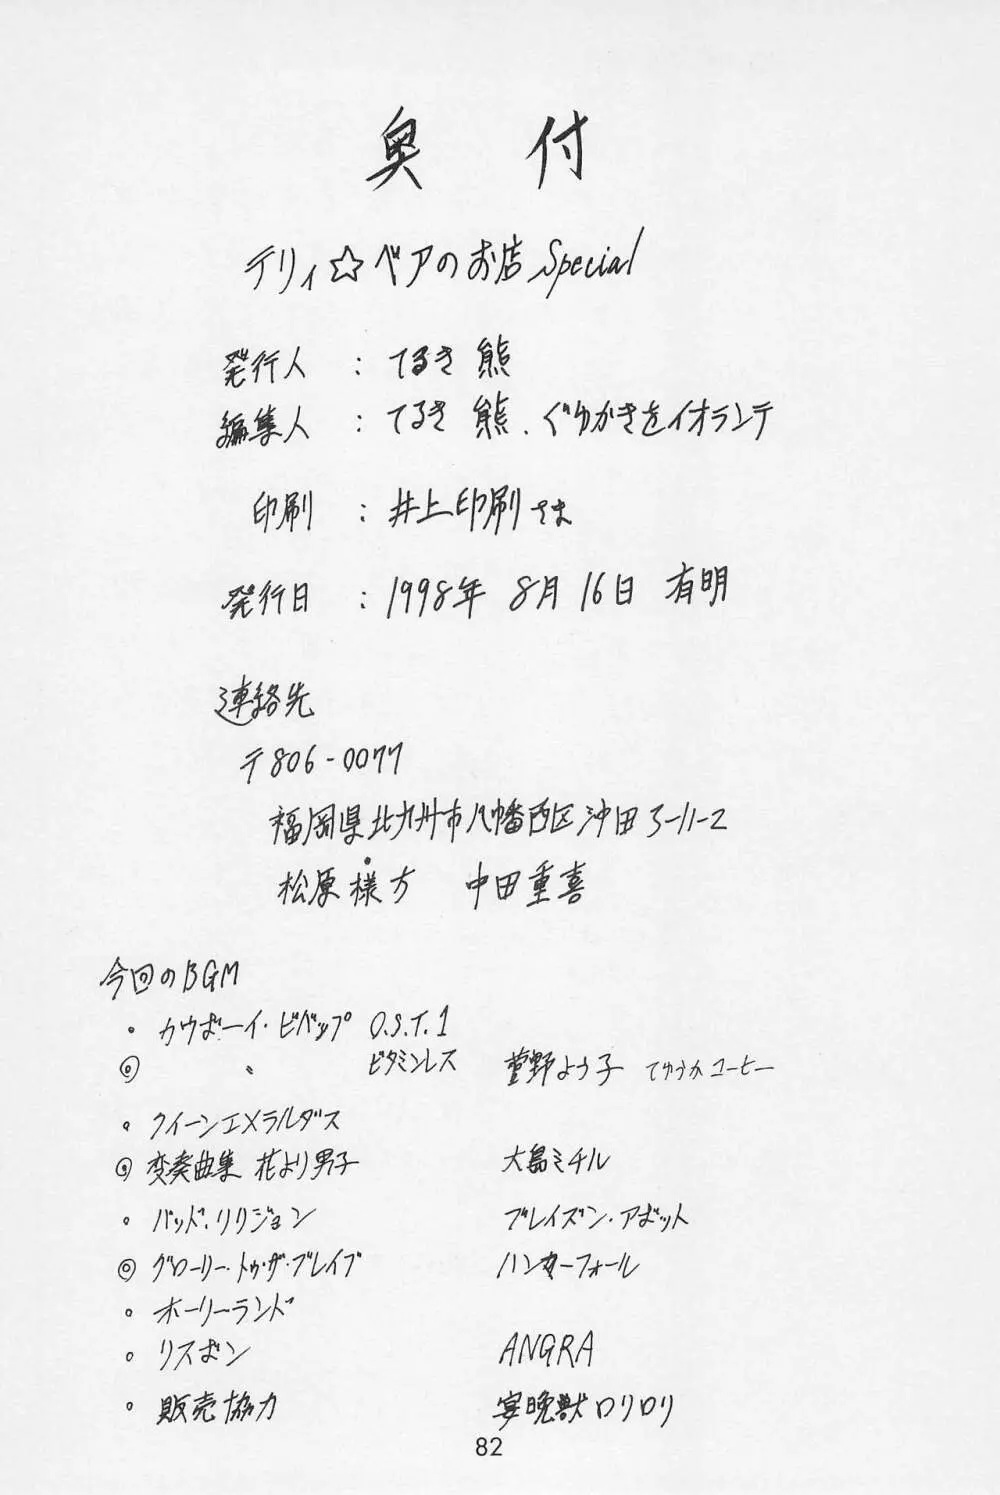 奥付
テリィ☆ベアのお店 Special
発行人 : てるき熊
編集人 : てるき熊、ぐゆかきをイオランテ
印刷 : 井上印刷さま
発行日 : 1998年 8月16日 有明
連絡先
〒806-0077
福岡県北九州市八幡西区沖田3-11-2
松原様方 中田重喜
今回のBGM
・カウボーイ・ビバップ O.S.T.1
◎ 〃 ビタミンレス 菅野よう子 てゆうかコーヒー
・クイーンエメラルダス
◎ 変奏曲集 花より男子 大島ミチル
・バッド・リリジョン ブレイズン・アボット
◎ グローリー・トゥ・ザ・ブレイブ ハンマーフォール
・ホーリーランド
・リスボン ANGRA
・販売協力 宴晩獣ロリロリ
82